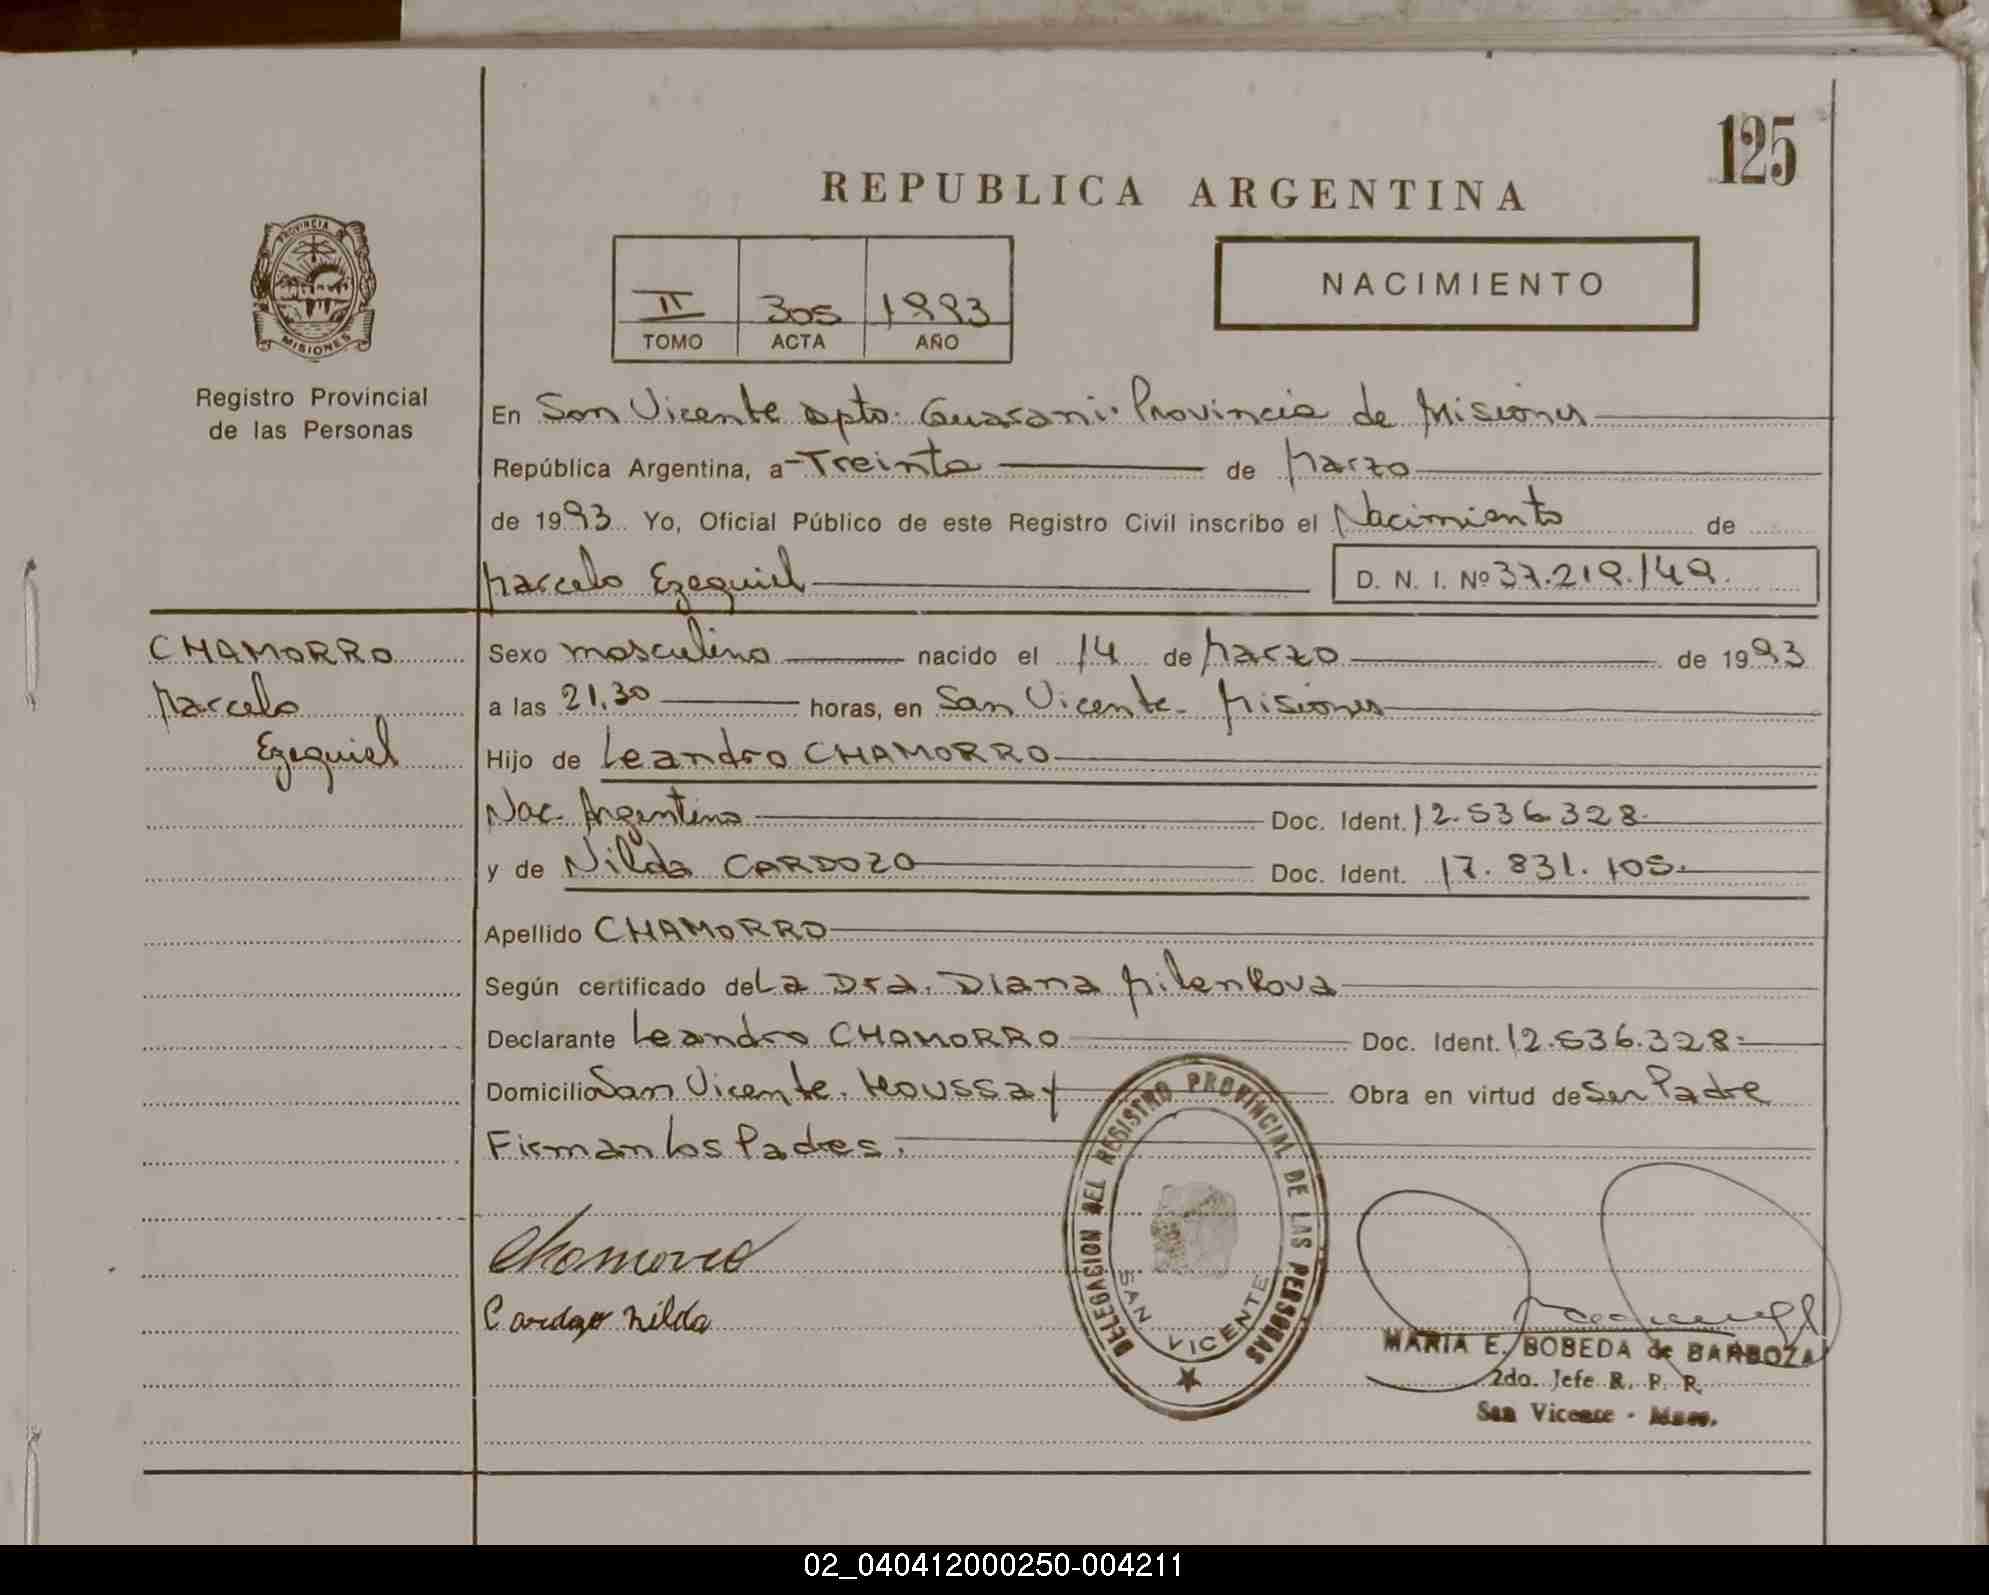 125
REPUBLICA ARGENTINA
PROVINCIA
MISIONES
Registro Provincial
de las Personas
II 305 1993
TOMO ACTA AÑO
NACIMIENTO
En San Vicente Dpto. Guaraní. Provincia de Misiones
República Argentina, a Treinta de Marzo
de 1993 Yo, Oficial Público de este Registro Civil inscribo el Nacimiento de
Marcelo Ezequiel D. N. I. Nº 37.219.149.
CHAMORRO
Marcelo
Ezequiel
Sexo masculino nacido el 14 de Marzo de 1993
a las 21,30 horas, en San Vicente. Misiones
Hijo de Leandro CHAMORRO
Nac. Argentino Doc. Ident. 12.536.328.
y de Nilda CARDOZO Doc. Ident. 17.831.105.
Apellido CHAMORRO
Según certificado de La Dra. Diana Milenkova
Declarante Leandro CHAMORRO Doc. Ident. 12.536.328.
Domicilio San Vicente. Moussay Obra en virtud de Ser Padre
Firman los Padres.
Chamorro
Cardozo Nilda
DELEGACION DEL REGISTRO PROVINCIAL DE LAS PERSONAS
SAN VICENTE
MARIA E. BOBEDA de BARBOZA
2do. Jefe R. P. R.
San Vicente - Mnes.
02_040412000250-004211